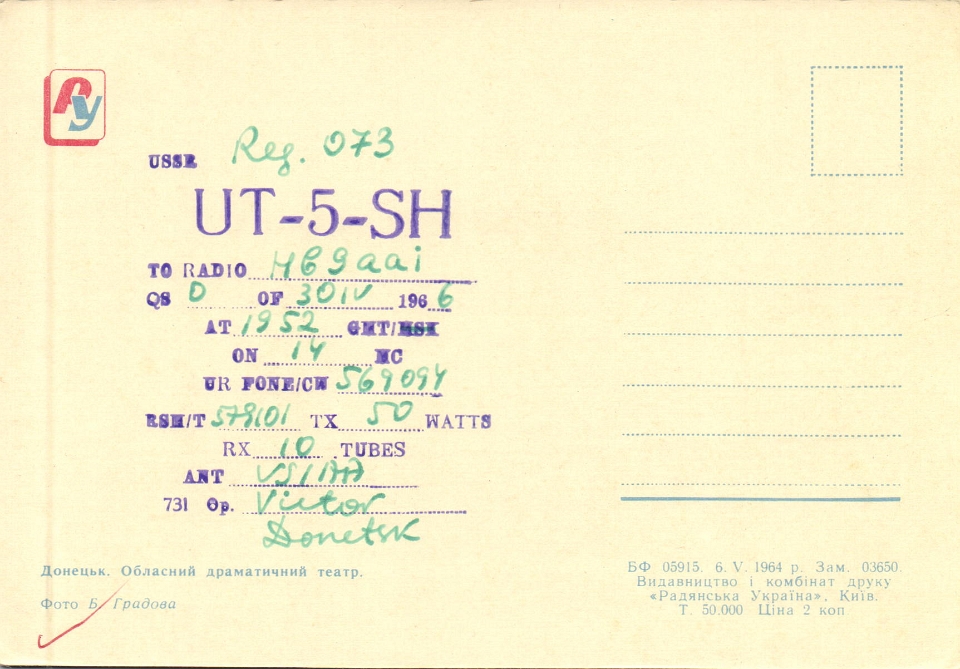 Ру
USSR Reg. 073
UT-5-SH
TO RADIO HB9aai
QSO OF 30 IV 1966
AT 1952 GMT/MSK
ON 14 MC
UR FONE/CW 569094
RSM/T 579101 TX 50 WATTS
RX 10 TUBES
ANT VS1AA
731 Op. Victor
Donetsk
Донецьк. Обласний драматичний театр.
Фото Б. Градова
БФ 05915. 6. V. 1964 р. Зам. 03650.
Видавництво і комбінат друку
«Радянська Україна», Київ.
Т. 50.000 Ціна 2 коп